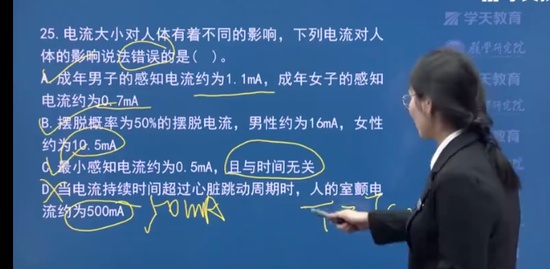 学天教育
教学研究院
25. 电流大小对人体有着不同的影响，下列电流对人
体的影响说法错误的是( )。
A. 成年男子的感知电流约为1.1mA，成年女子的感知
电流约为0.7mA
B. 摆脱概率为50%的摆脱电流，男性约为16mA，女性
约为10.5mA
C. 最小感知电流约为0.5mA，且与时间无关
D. 当电流持续时间超过心脏跳动周期时，人的室颤电
流约为500mA
50mA